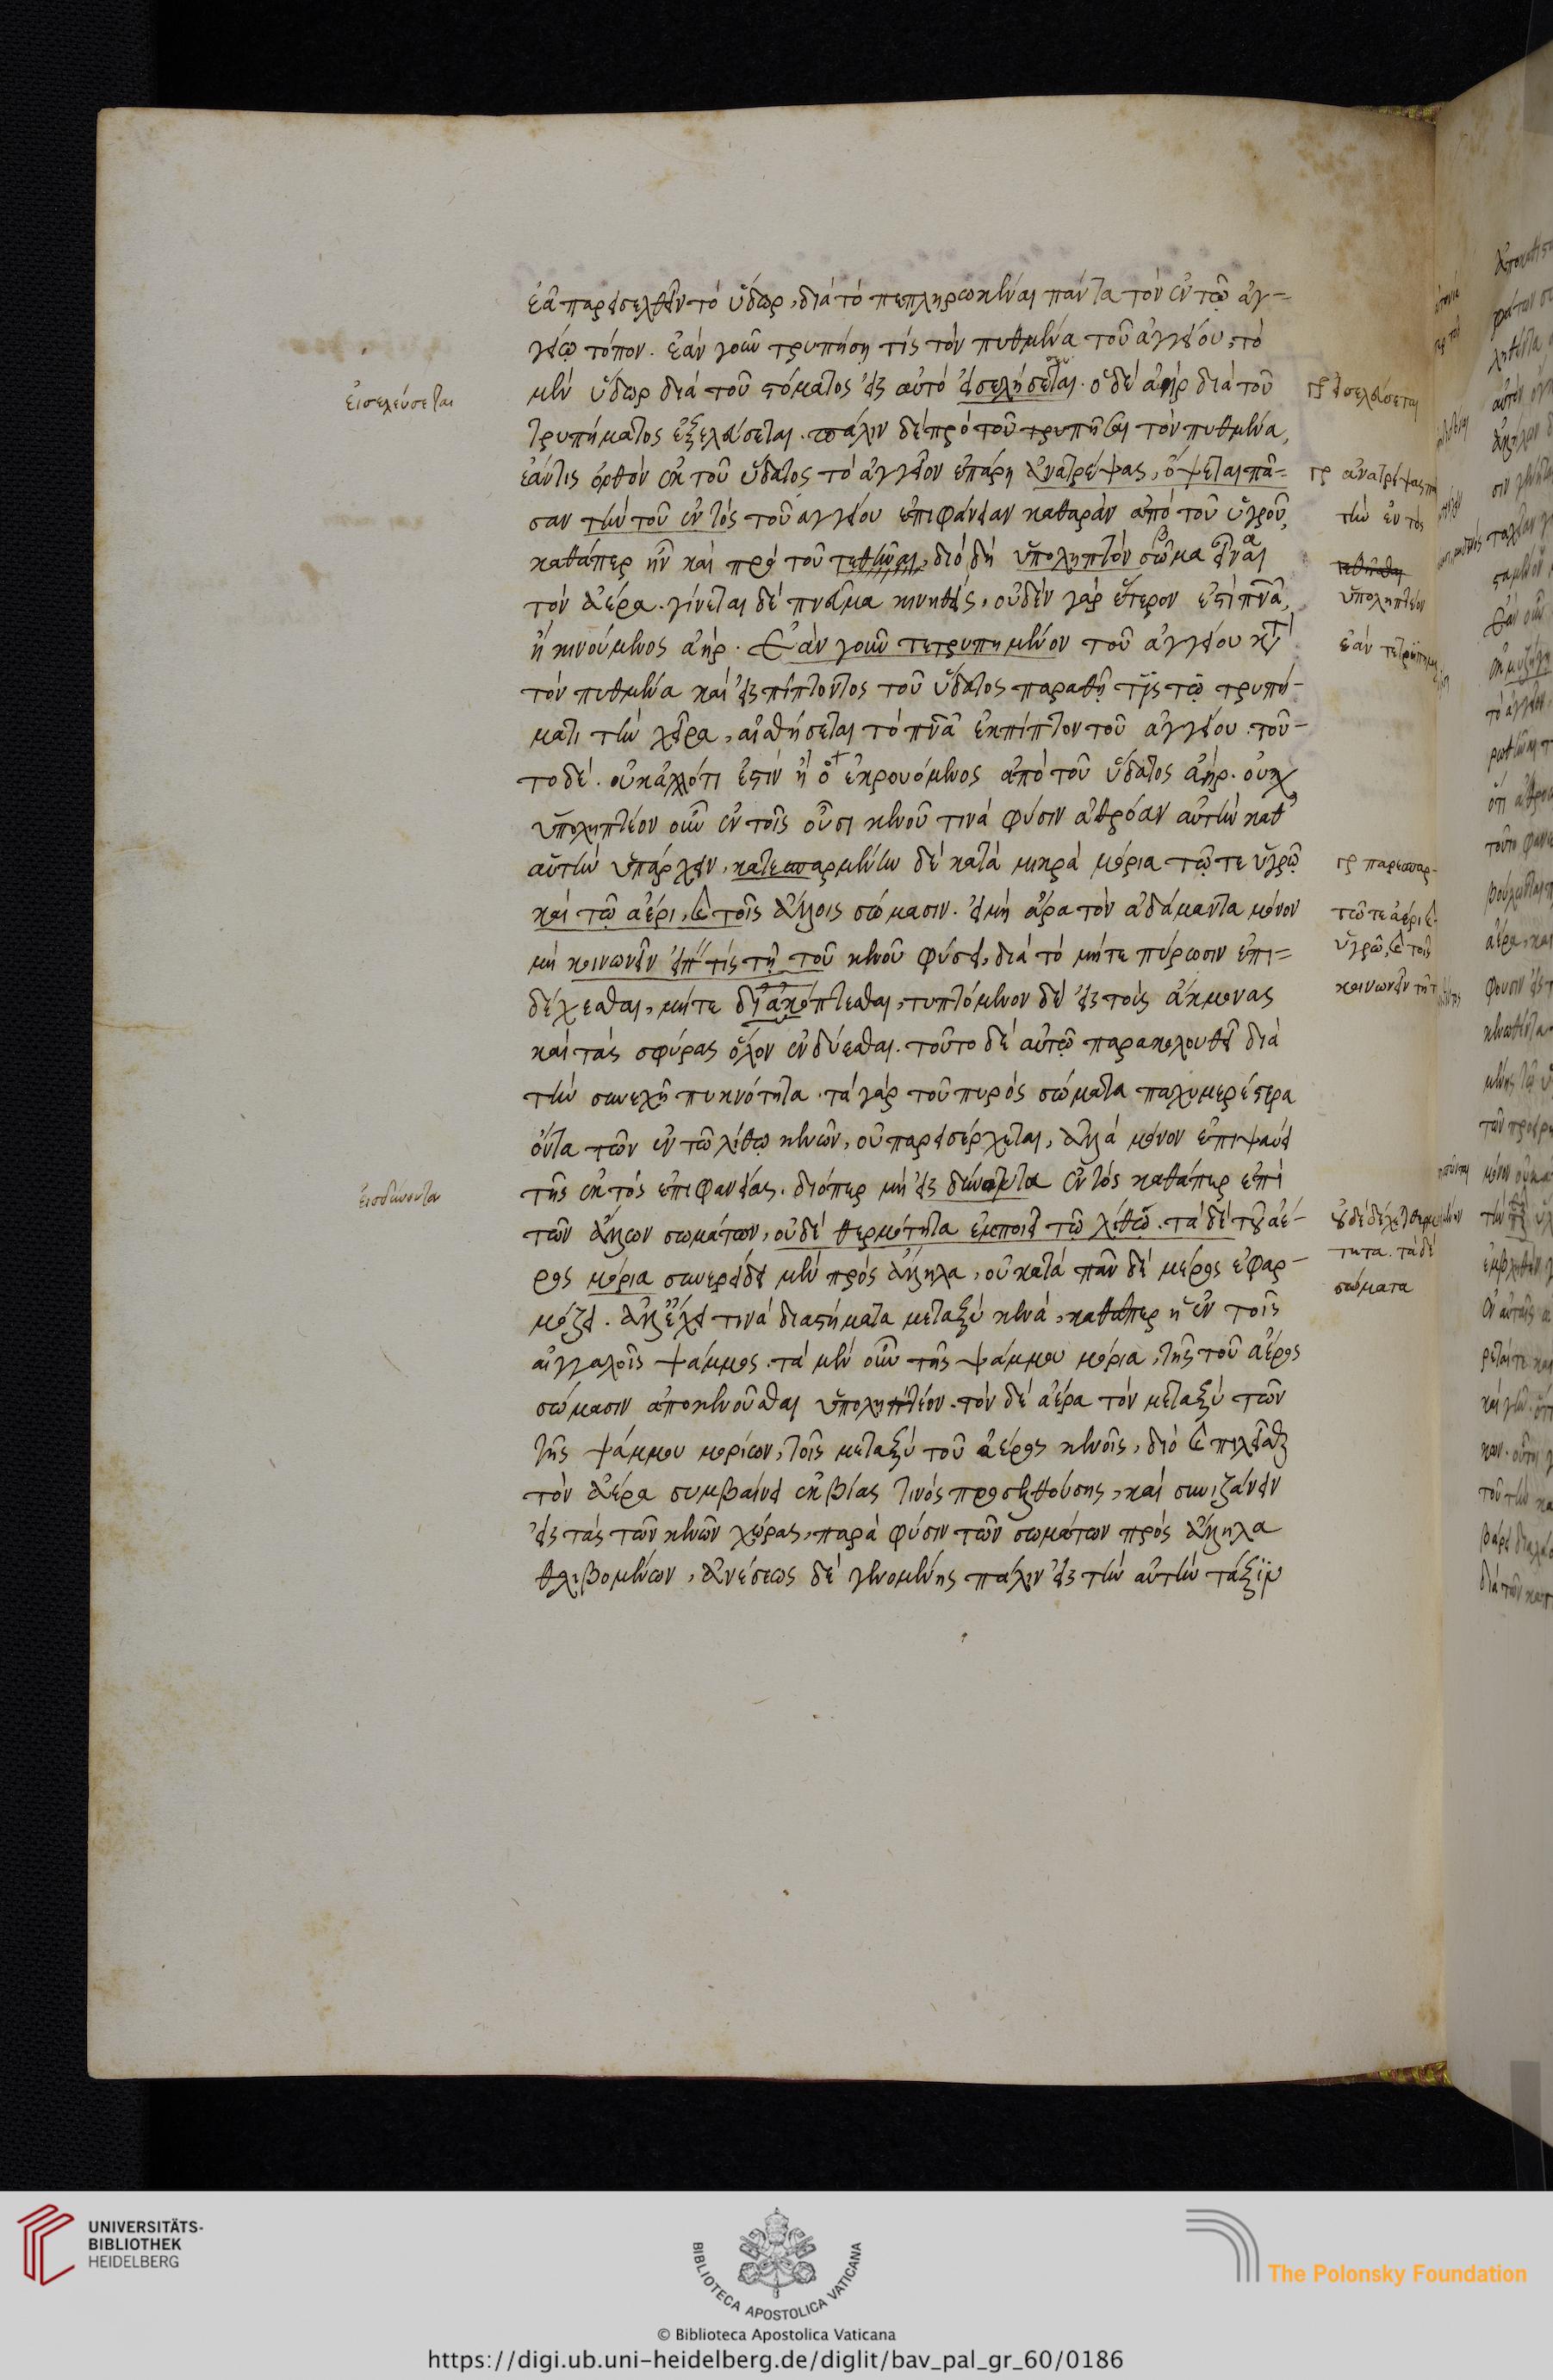 ἐᾶ παρεισελθεῖν τὸ ὕδωρ, διὰ τὸ πεπληρωκέναι πάντα τὸν ἐν τῷ ἀγ-
γείῳ τόπον. ἐὰν γοῦν τρυπήσῃ τίς τὸν πυθμένα τοῦ ἀγγείου, τὸ
εἰσελεύσεται
μὲν ὕδωρ διὰ τοῦ στόματος εἰς αὐτὸ εἰσελήσεται. ὁ δὲ ἀὴρ διὰ τοῦ
γρ εἰσελεύσεται
τρυπήματος ἐξελεύσεται. πάλιν δὲ πρὸ τοῦ τρυπῆσαι τὸν πυθμένα,
ἐάν τις ὀρθὸν ἐκ τοῦ ὕδατος τὸ ἀγγεῖον ἐπάρῃ ἀνατρέψας, ὄψεται πᾶ-
γρ ἀνατρέψας
σαν τὴν τοῦ ἐντὸς τοῦ ἀγγείου ἐπιφάνειαν καθαρὰν ἀπὸ τοῦ ὑγροῦ,
τὴν ἐντὸς
καθάπερ ἦν καὶ πρὸ τοῦ τεθῆναι, διὸ δὴ ὑποληπτὸν σῶμα εἶναι
τὸν ἀέρα. γίνεται δὲ πνεῦμα κινηθεὶς, οὐδὲν γὰρ ἕτερον ἐστὶ πνᾶ,
ὑποληπτέον
ἢ κινούμενος ἀήρ. Ἐὰν γοῦν τετρυπημένον τοῦ ἀγγείου κτ
ἐὰν τετρυπημένου
τὸν πυθμένα καὶ εἰσπίπτοντος τοῦ ὕδατος παραθῇ τὶς τῷ τρυπή-
ματι τὴν χεῖρα, αἰσθήσεται τὸ πνᾶ ἐκπίπτον τοῦ ἀγγείου. τοῦ-
το δὲ. οὐκ ἄλλο τι ἐστὶν ἢ ὁ ἐκρουόμενος ἀπὸ τοῦ ὕδατος ἀήρ. οὐχ
ὑποληπτέον οὖν ἐν τοῖς οὖσι κενοῦ τινὰ φύσιν ἀθρόαν αὐτὴν καθ'
αὑτὴν ὑπάρχειν, κατεσπαρμένην δὲ κατὰ μικρὰ μόρια τῷ τε ὑγρῷ
γρ παρεσπαρ-
καὶ τῷ ἀέρι, καὶ τοῖς ἄλλοις σώμασιν. εἰ μὴ ἄρα τὸν ἀδάμαντα μόνον
τῷ τε ἀέρι καὶ
μὴ κοινωνεῖν εἴπῃ τίς τῇ τοῦ κενοῦ φύσει, διὰ τὸ μήτε πύρωσιν ἐπι-
ὑγρῷ, καὶ τοῖς
δέχεσθαι, μήτε διακόπτεσθαι, τυπτόμενον δὲ εἰς τοὺς ἄκμονας
κοινωνεῖν τῇ τ
καὶ τὰς σφύρας ὅλον ἐνδύεσθαι. τοῦτο δὲ αὐτῷ παρακολουθεῖ διὰ
τὴν συνεχῆ πυκνότητα. τὰ γὰρ τοῦ πυρὸς σώματα παχυμερέστερα
ὄντα τῶν ἐν τῷ λίθῳ κενῶν, οὐ παρεισέρχεται, ἀλλὰ μόνον ἐπιψαύει
εἰσδύνοντα
τῆς ἐκτὸς ἐπιφανείας. διόπερ μὴ εἰς δύναντα ἐντὸς καθάπερ ἐπὶ
τῶν ἄλλων σωμάτων, οὐδὲ θερμότητα ἐμποιεῖ τῷ λίθῳ. τὰ δὲ τοῦ ἀέ-
οὐδὲ δέχεται θερμό
τητα. τὰ δὲ
ρος μόρια συνερείδει μὲν πρὸς ἄλληλα, οὐ κατὰ πᾶν δὲ μέρος ἐφαρ-
σώματα
μόζει. ἀλλ' ἔχει τινὰ διαστήματα μεταξὺ κενὰ, καθάπερ ἡ ἐν τοῖς
αἰγιαλοῖς ψάμμος. τὰ μὲν οὖν τῆς ψάμμου μόρια, τῆς τοῦ ἀέρος
σώμασιν ἀποκενοῦσθαι ὑποληπτέον. τὸν δὲ ἀέρα τὸν μεταξὺ τῶν
τῆς ψάμμου μορίων, τοῖς μεταξὺ τοῦ ἀέρος κενοῖς, διὸ καὶ πιλεῖσθαι
τὸν ἀέρα συμβαίνει ἐκ βίας τινὸς προσελθούσης, καὶ συνιζάνειν
εἰς τὰς τῶν κενῶν χώρας, παρὰ φύσιν τῶν σωμάτων πρὸς ἄλληλα
θλιβομένων, ἀνέσεως δὲ γενομένης πάλιν εἰς τὴν αὐτὴν τάξιν
UNIVERSITÄTS-
BIBLIOTHEK
HEIDELBERG
BIBLIOTECA APOSTOLICA VATICANA
The Polonsky Foundation
© Biblioteca Apostolica Vaticana
https://digi.ub.uni-heidelberg.de/diglit/bav_pal_gr_60/0186